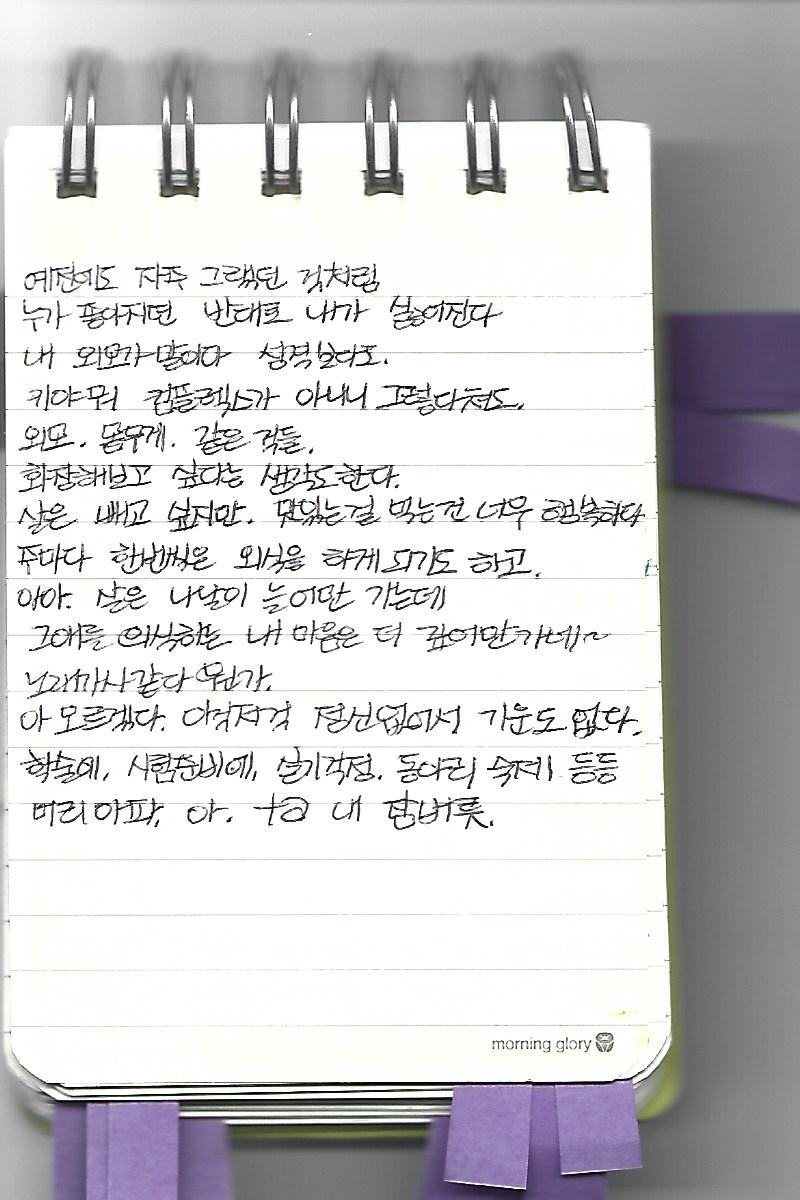 예전에도 자주 그랬던 것처럼
누가 좋아지면 반대로 내가 싫어진다
내 외모가 말이다 성격보다도.
키야 뭐 컴플렉스가 아니니 그렇다쳐도.
외모. 몸무게. 같은 것들.
화장해보고 싶다는 생각도 한다.
살은 빼고 싶지만. 맛있는걸 먹는건 너무 행복하다
주마다 한번씩은 외식을 하게 되기도 하고.
아아. 살은 나날이 늘어만 가는데
그애를 의식하는 내 마음은 더 깊어만가네~
노래가사같다 뭔가.
아 모르겠다. 이것저것 정신없어서 기운도 없다.
학술에, 시험준비에, 실기걱정. 동아리 숙제 등등
머리아파, 아. +@ 내 잠버릇.
morning glory